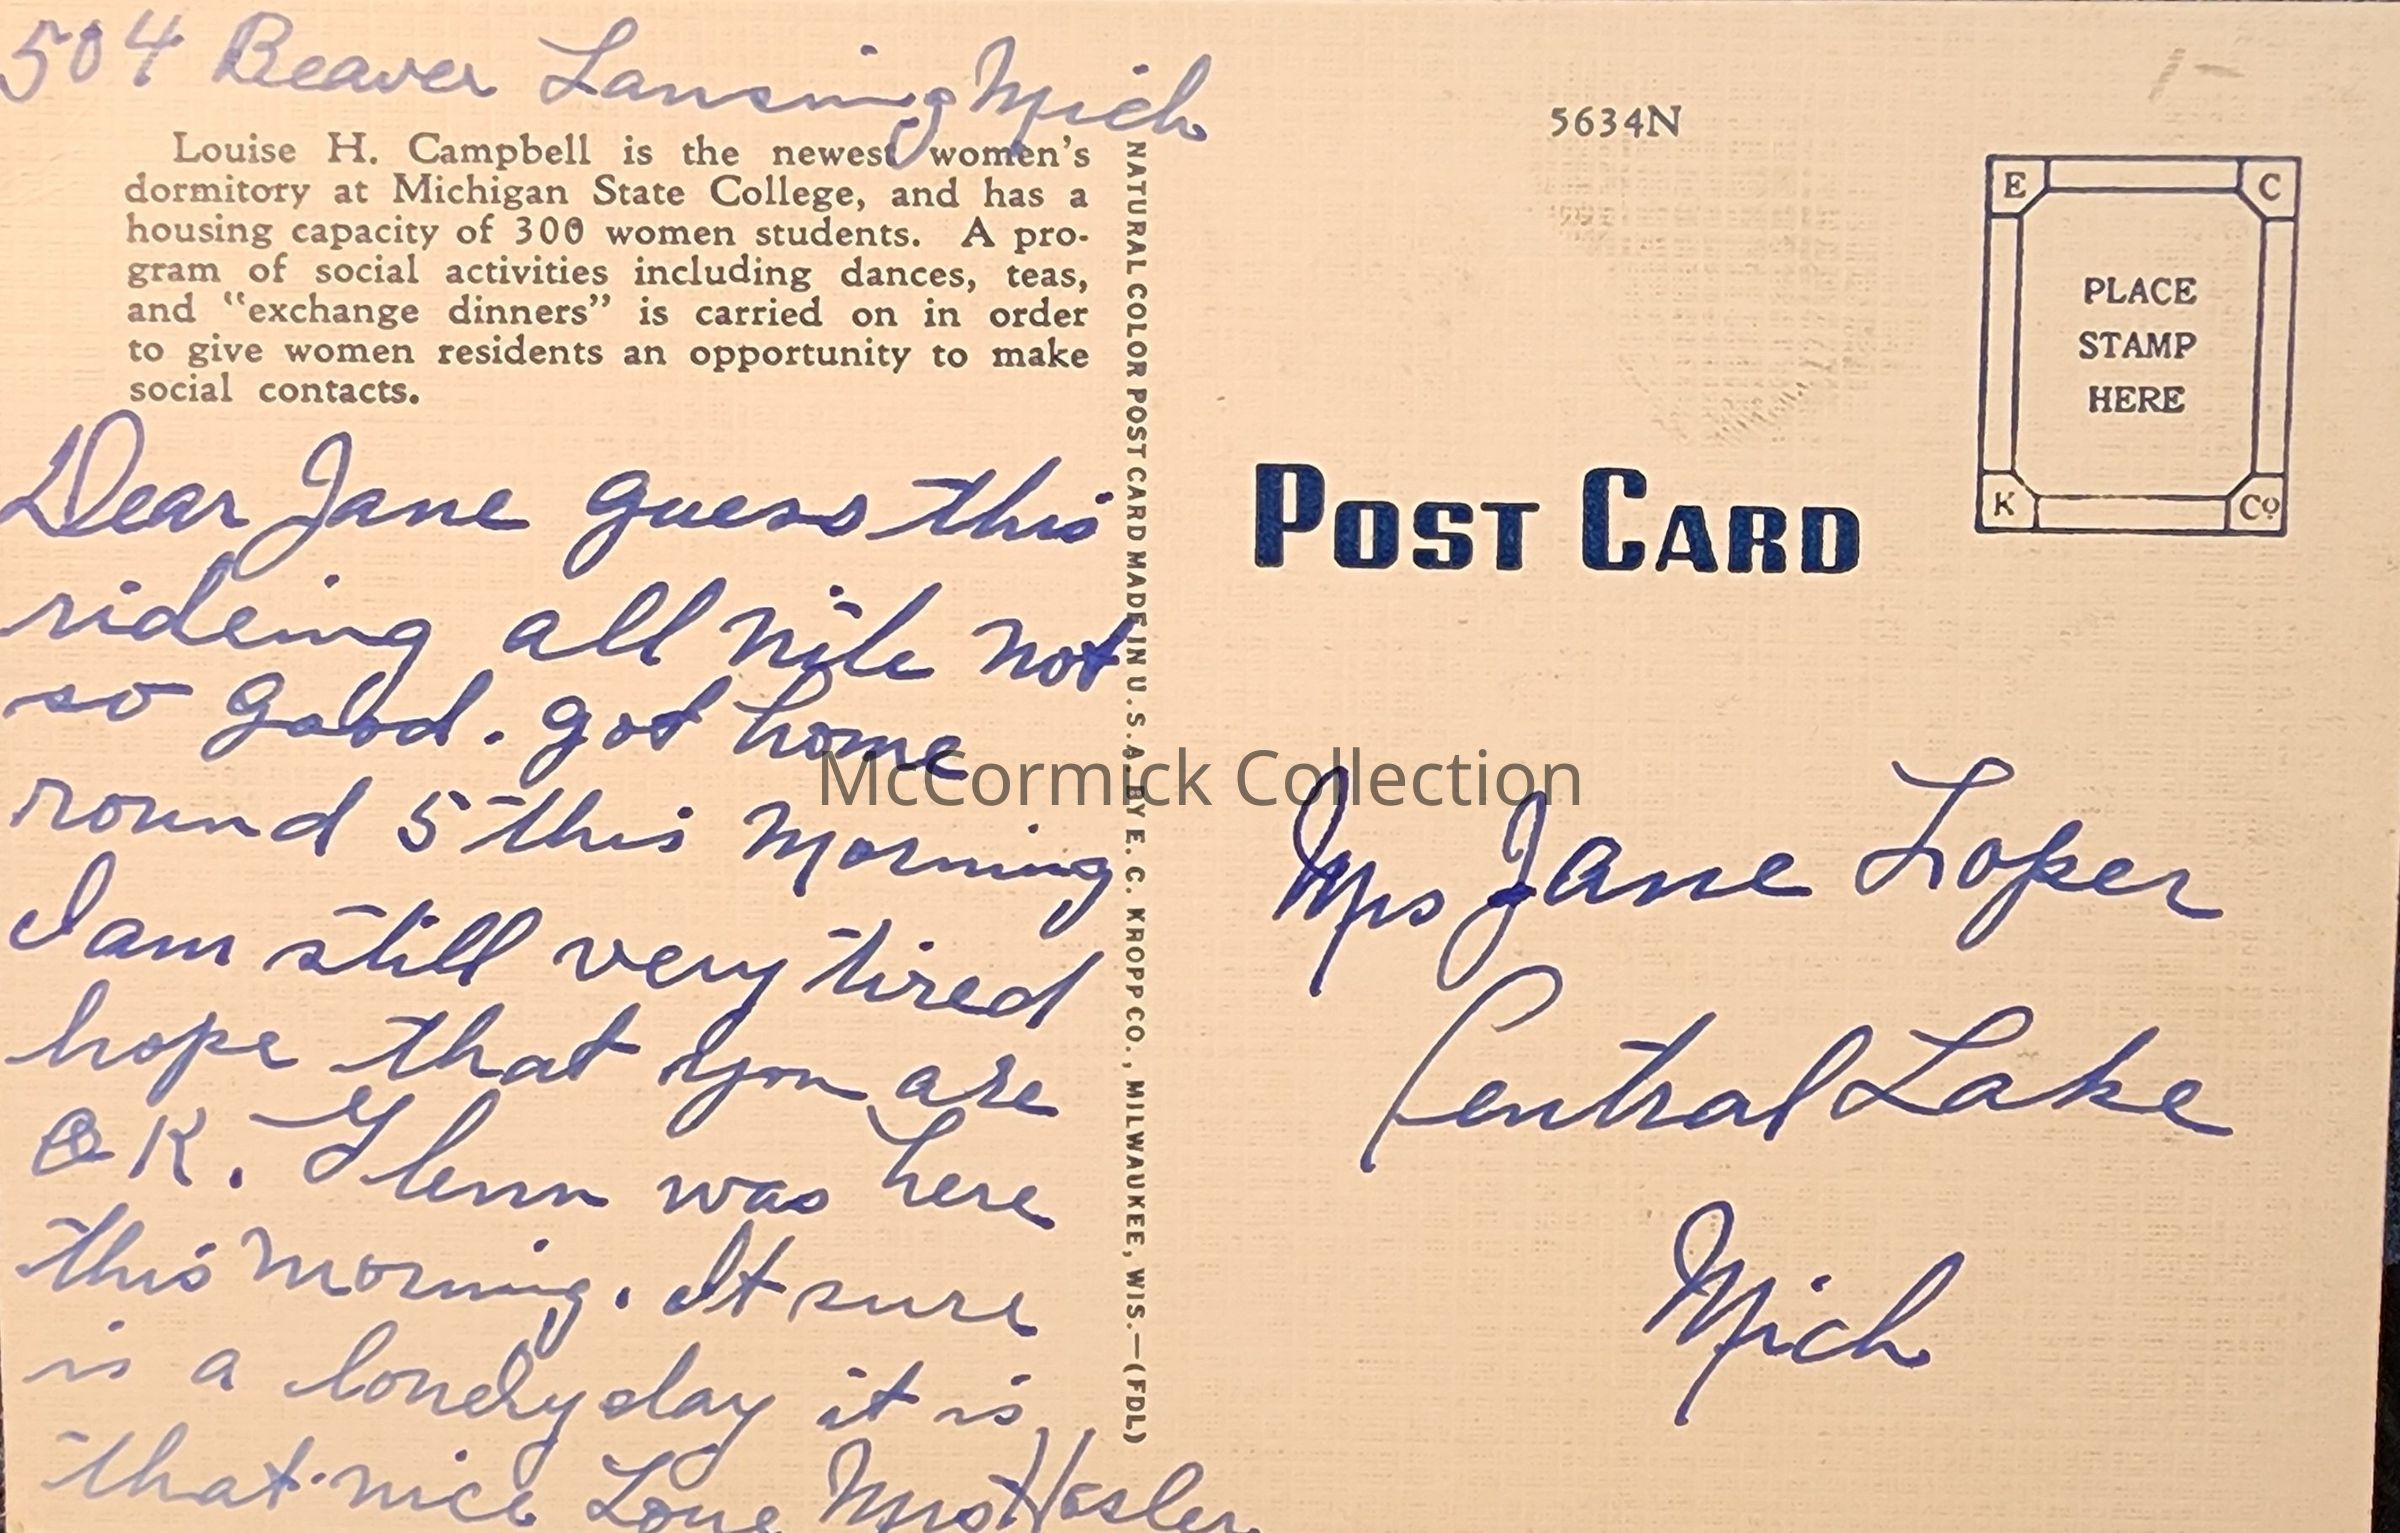 504 Beaver Lansing Mich
Louise H. Campbell is the newest women's
dormitory at Michigan State College, and has a
housing capacity of 300 women students. A pro-
gram of social activities including dances, teas,
and "exchange dinners" is carried on in order
to give women residents an opportunity to make
social contacts.
Dear Jane guess this
rideing all nite not
so good. got home
round 5 this morning
I am still very tired
hope that you are
OK. Glenn was here
this morning. It sure
is a lonely day it is
that nice Love Mrs Hasler
NATURAL COLOR POST CARD MADE IN U.S.A. BY E. C. KROPP CO., MILWAUKEE, WIS.—(FDL)
5634N
E C
PLACE
STAMP
HERE
K Co
POST CARD
Mrs Jane Loper
Central Lake
Mich
McCormick Collection